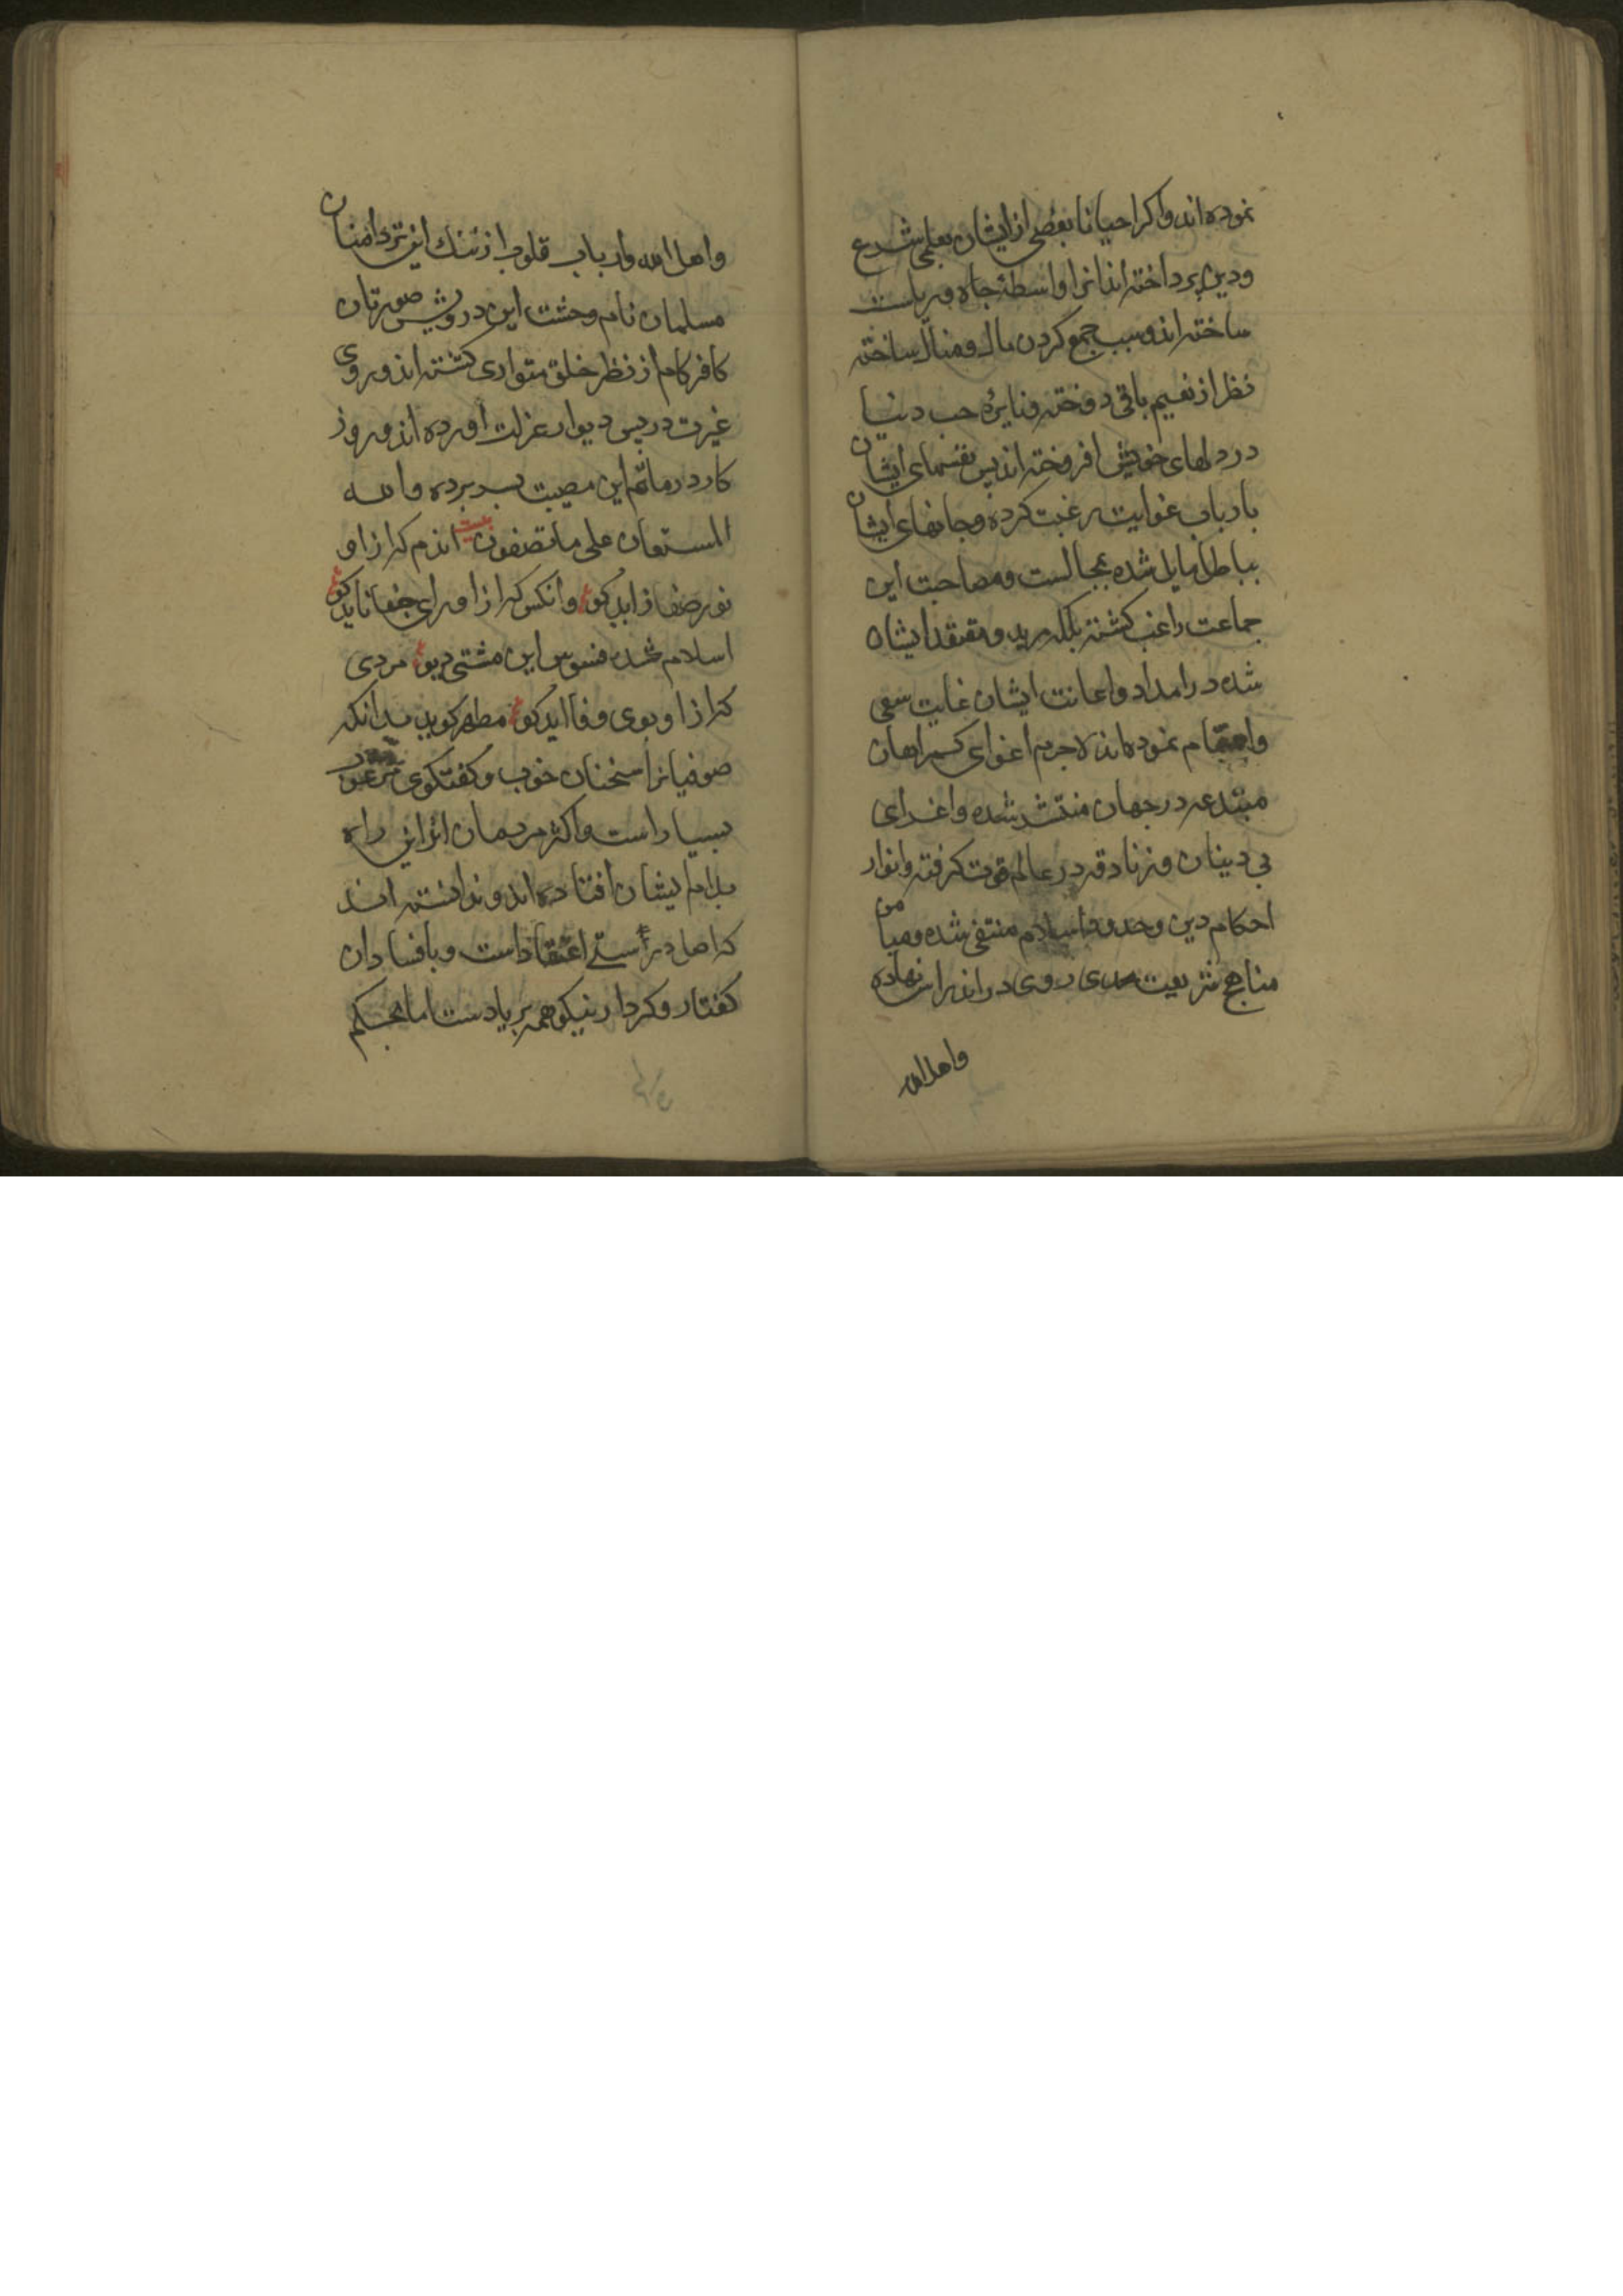 نموده اند واکر احیانا بعضی از ایشان بعلمی شرع
ودین پرداخته اند انرا واسطهٔ جاه وریاست
ساخته اند وسبب جمع کردن مال ومنال ساخته
نظر از نعیم باقی دوخته ونایرهٔ حب دنیا
در دلهای خویش افروخته اند پس نفسهای ایشان
بارباب غوایت رغبت کرده وجانهای ایشان
بباطل مایل شده بمجالست ومصاحبت این
جماعت راغب کشته بلکه مرید ومعتقد ایشان
شده در امداد واعانت ایشان غایت سعی
واهتمام نموده اند لاجرم اغوای کمراهان
مبتدعه در جهان منتشر شده واغرای
بی دینان وزنادقه در عالم قوت کرفته وانوار
احکام دین وحدود اسلام منتفی شده ومیامن
مناهج شریعت محمدی روی در اندراس نهاده
واهل الله
واهل الله وارباب قلوب از ننک این تردامنان
مسلمان نام وحشت این درویش صورتان
کافر کام از نظر خلق متواری کشته اند وروی
غیرت در پس دیوار عزلت اورده اند وروز
کار در ماتم این مصیبت بسر برده والله
المستعان علی ماتصفون بیت اندم که ازو
نور صفا زاید کو وانکس که ازو رای خفا ناید کو
اسلام شده فسوس این مشتی دیو مردی
که ازو بوی وفا اید کو مطهر کوید بدانکه
صوفیانرا سخنان خوب وکفتکوی مرغوب
بسیار است واکثر مردمان ازین راه
بدام ایشان افتاده اند وندانسته اند
که اصل در راستی اعتقاد است وبافساد ان
کفتار وکردار نیکو همه بر یادست اما بحکم